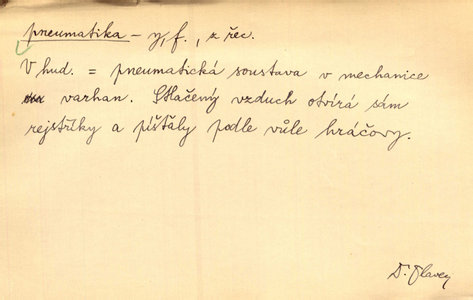 pneumatika – y, f., z řec.
V hud. = pneumatická soustava v mechanice
varhan. Stlačený vzduch otvírá sám
rejstříky a píšťaly podle vůle hráčovy.